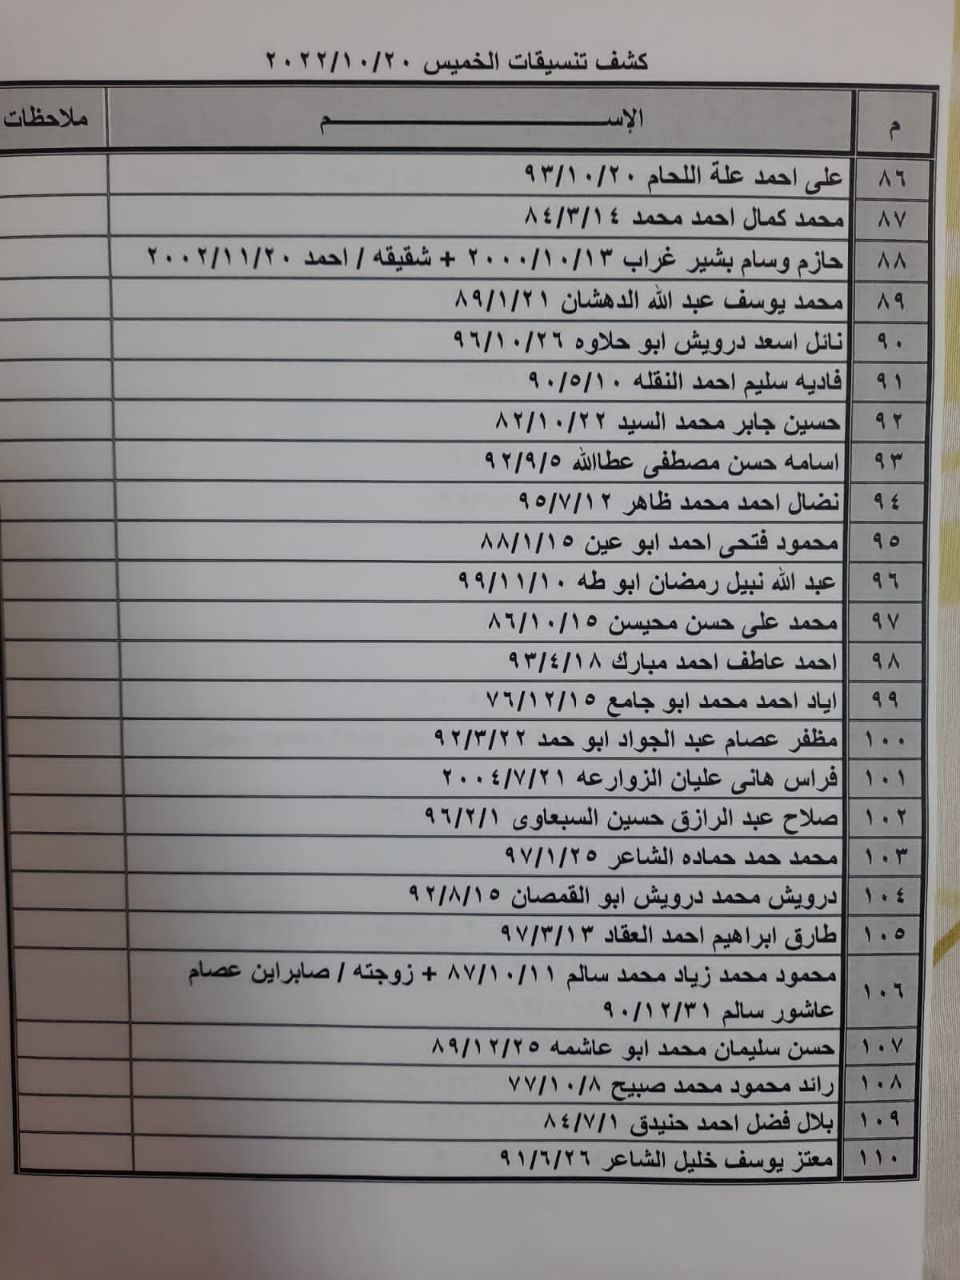 كشف تنسيقات الخميس ٢٠٢٢/١٠/٢٠
م الإســــــــم ملاحظات
٨٦ على احمد علة اللحام ٩٣/١٠/٢٠
٨٧ محمد كمال احمد محمد ٨٤/٣/١٤
٨٨ حازم وسام بشير غراب ٢٠٠٠/١٠/١٣ + شقيقه / احمد ٢٠٠٢/١١/٢٠
٨٩ محمد يوسف عبد الله الدهشان ٨٩/١/٢١
٩٠ نائل اسعد درويش ابو حلاوه ٩٦/١٠/٢٦
٩١ فاديه سليم احمد النقله ٩٠/٥/١٠
٩٢ حسين جابر محمد السيد ٨٢/١٠/٢٢
٩٣ اسامه حسن مصطفى عطاالله ٩٢/٩/٥
٩٤ نضال احمد محمد ظاهر ٩٥/٧/١٢
٩٥ محمود فتحى احمد ابو عين ٨٨/١/١٥
٩٦ عبد الله نبيل رمضان ابو طه ٩٩/١١/١٠
٩٧ محمد على حسن محيسن ٨٦/١٠/١٥
٩٨ احمد عاطف احمد مبارك ٩٣/٤/١٨
٩٩ اياد احمد محمد ابو جامع ٧٦/١٢/١٥
١٠٠ مظفر عصام عبد الجواد ابو حمد ٩٢/٣/٢٢
١٠١ فراس هانى عليان الزوارعه ٢٠٠٤/٧/٢١
١٠٢ صلاح عبد الرازق حسين السبعاوى ٩٦/٢/١
١٠٣ محمد حمد حماده الشاعر ٩٧/١/٢٥
١٠٤ درويش محمد درويش ابو القمصان ٩٢/٨/١٥
١٠٥ طارق ابراهيم احمد العقاد ٩٧/٣/١٣
١٠٦ محمود محمد زياد محمد سالم ٨٧/١٠/١١ + زوجته / صابراين عصام
عاشور سالم ٩٠/١٢/٣١
١٠٧ حسن سليمان محمد ابو عاشمه ٨٩/١٢/٢٥
١٠٨ رائد محمود محمد صبيح ٧٧/١٠/٨
١٠٩ بلال فضل احمد حنيدق ٨٤/٧/١
١١٠ معتز يوسف خليل الشاعر ٩١/٦/٢٦